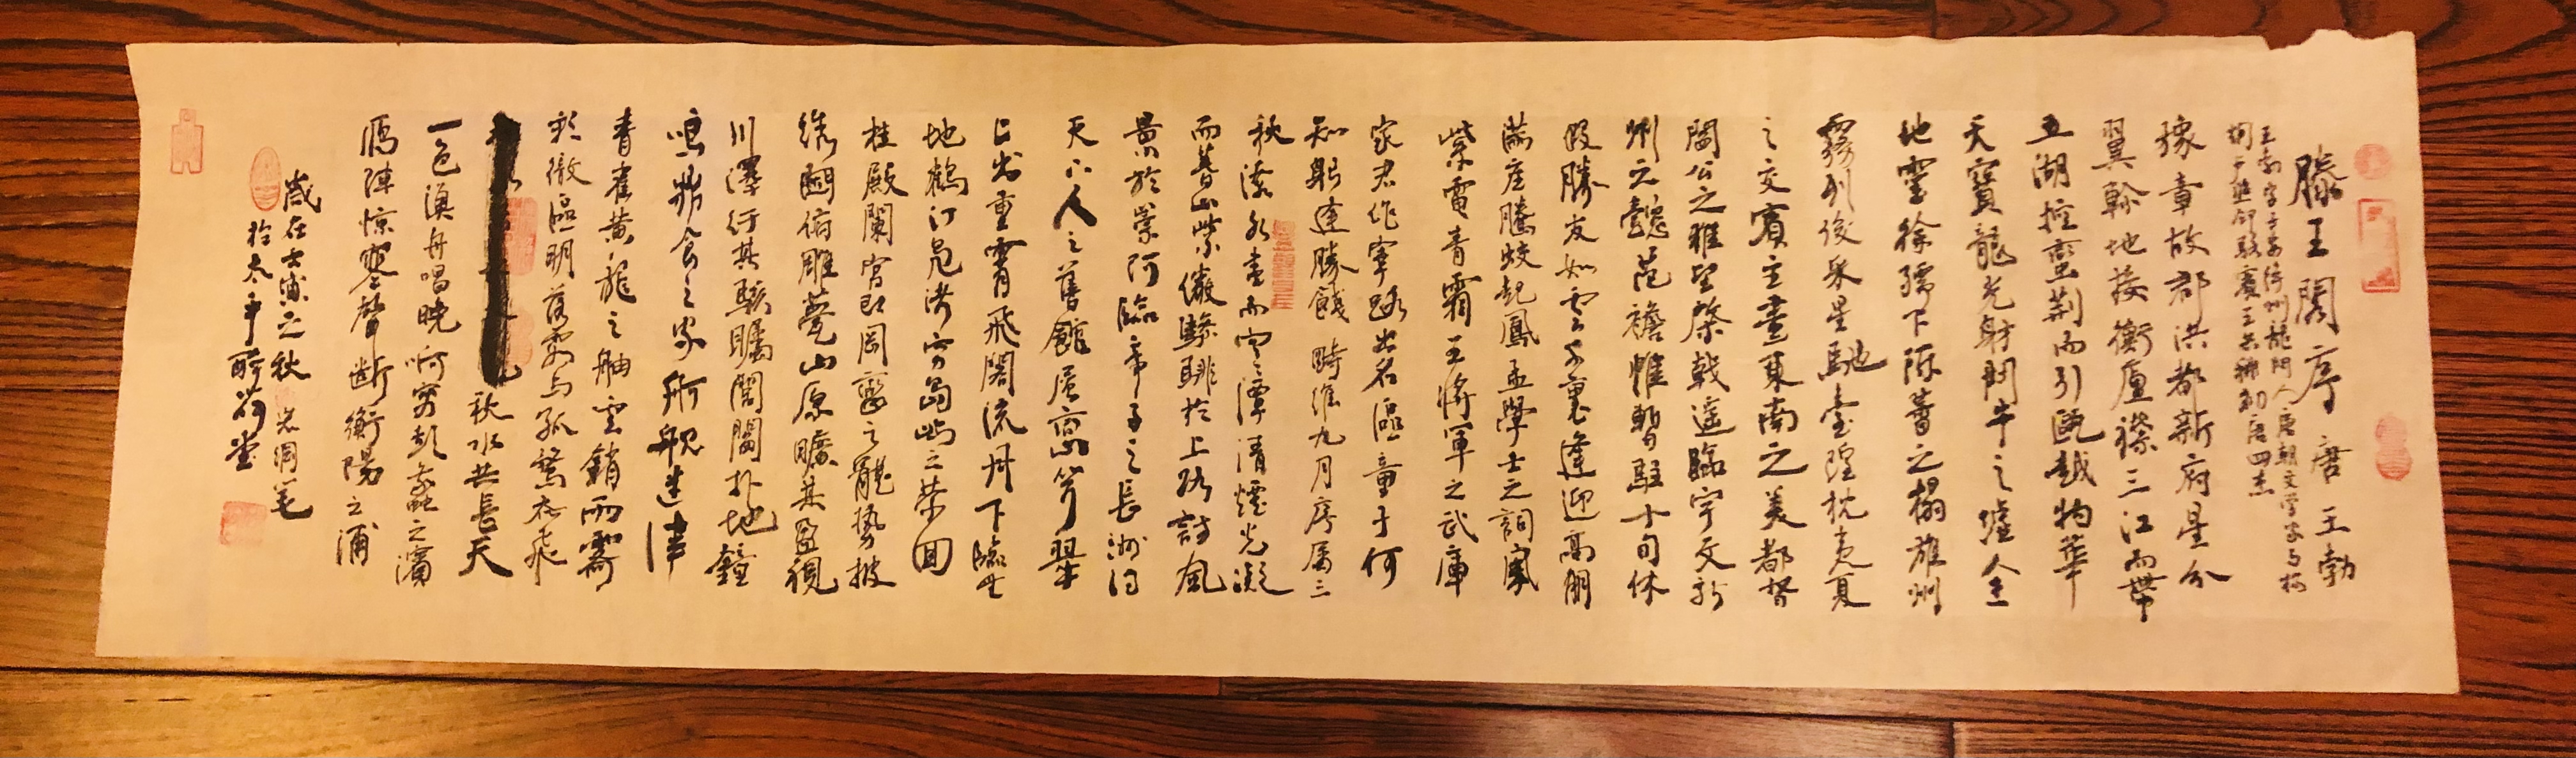 滕王閣序 唐 王勃
王勃字子安絳州龍門人唐朝文學家與楊
炯盧照鄰駱賓王共稱初唐四杰
豫章故郡洪都新府星分
翼軫地接衡廬襟三江而帶
五湖控蠻荊而引甌越物華
天寶龍光射鬥牛之墟人杰
地靈徐孺下陳蕃之榻雄州
霧列俊采星馳臺隍枕夷夏
之交賓主盡東南之美都督
閻公之雅望棨戟遙臨宇文新
州之懿范襜帷暫駐十旬休
假勝友如雲千里逢迎高朋
滿座騰蛟起鳳孟學士之詞宗
紫電青霜王將軍之武庫
家君作宰路出名區童子何
知躬逢勝餞時維九月序屬三
秋潦水盡而寒潭清煙光凝
而暮山紫儼驂騑於上路訪風
景於崇阿臨帝子之長洲得
天人之舊館層巒聳翠
上出重霄飛閣流丹下臨無
地鶴汀鳧渚窮島嶼之縈回
桂殿蘭宮即岡巒之體勢披
繡闥俯雕甍山原曠其盈視
川澤紆其駭矚閭閻撲地鐘
鳴鼎食之家舸艦迷津
青雀黃龍之舳雲銷雨霽
彩徹區明落霞與孤鶩齊飛
秋水共長天
一色漁舟唱晚響窮彭蠡之濱
雁陣驚寒聲斷衡陽之浦
歲在壬寅之秋
於太平